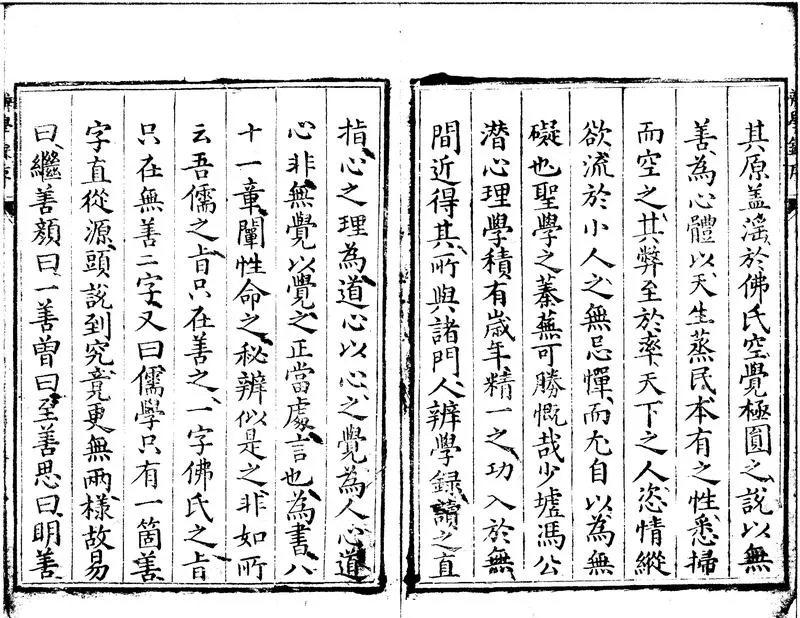 其原盖滛於佛氏空覺極圓之說以無
善為心體以天生蒸民本有之性悉掃
而空之其弊至於率天下之人恣情縱
欲流於小人之無忌憚而尤自以為無
礙也聖學之蓁蕪可勝慨哉少墟馮公
潛心理學積有歲年精一之功入於無
間近得其所與諸門人辨學錄讀之直
指心之理為道心以心之覺為人心道
心非無覺以覺之正當處言也為書八
十一章闡性命之秘辨似是之非如所
云吾儒之旨只在善之一字佛氏之旨
只在無善二字又曰儒學只有一箇善
字直從源頭說到究竟更無兩樣故易
曰繼善顏曰一善曽曰至善思曰明善